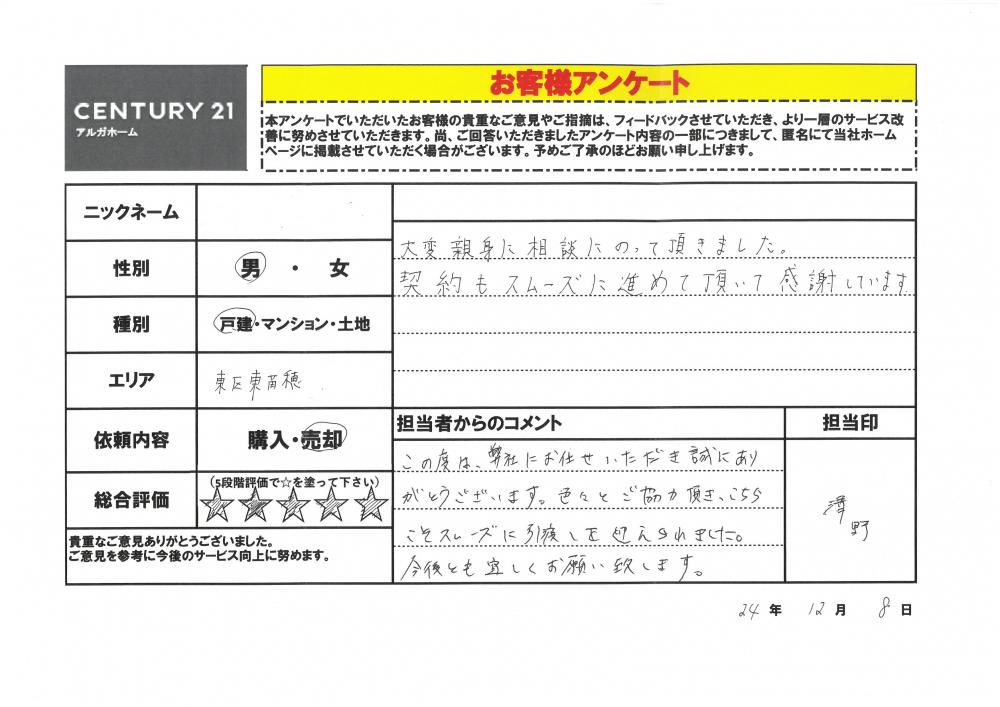 CENTURY 21
アルガホーム
お客様アンケート
本アンケートでいただいたお客様の貴重なご意見やご指摘は、フィードバックさせていただき、より一層のサービス改
善に努めさせていただきます。尚、ご回答いただきましたアンケート内容の一部につきまして、匿名にて当社ホーム
ページに掲載させていただく場合がございます。予めご了承のほどお願い申し上げます。
ニックネーム
性別
男 ・ 女
種別
戸建・マンション・土地
エリア
東区東苗穂
依頼内容
購入・売却
総合評価
(5段階評価で☆を塗って下さい)
貴重なご意見ありがとうございました。
ご意見を参考に今後のサービス向上に努めます。
大変親身に相談にのって頂きました。
契約もスムーズに進めて頂いて感謝しています
担当者からのコメント
この度は、弊社にお任せいただき誠にあり
がとうございます。色々とご協力頂き、こちら
こそスムーズに引渡しを迎えられました。
今後とも宜しくお願い致します。
担当印
野
24 年 12 月 8 日